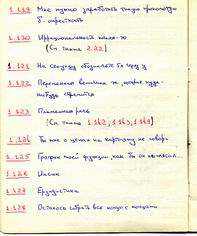 1.119 Мне нужно заработать такую прожжённую
δ-окрестность
1.120 Иррациональность какая-то
(См. также 2.22)
1.121 На секунду обозначьте 5x через y
1.122 Переменная величина x, которая куда-
нибудь стремится
1.123 Пламенная речь
(См. также 1.162, 1.163, 1.169)
1.124 Ты мне о ценах на картошку не говори
1.125 График моей функции, как бы он ни плясал...
1.126 Инсин
1.127 Ерундистика
1.128 Осталось собрать все концы с концами